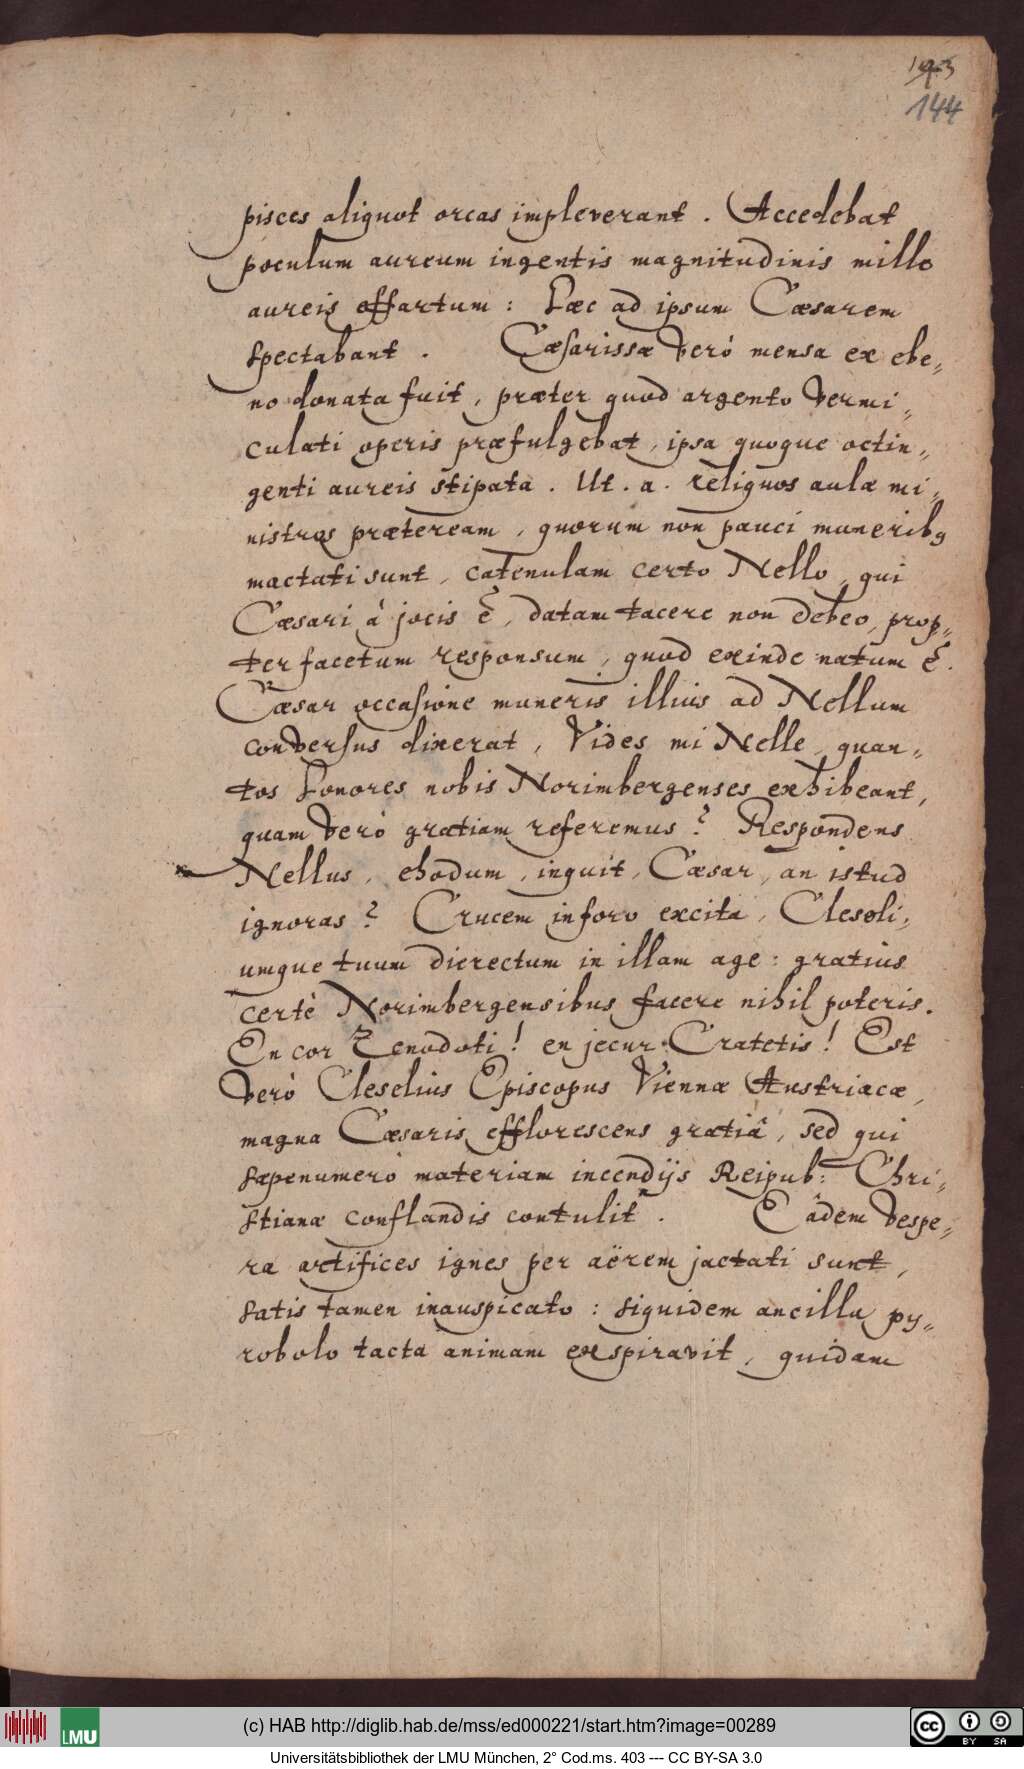 143
144
pisces aliquot orcas impleverant. Accedebat
poculum aureum ingentis magnitudinis mille
aureis effartum: Haec ad ipsum Cæsarem
spectabant. Cæsarissæ verò mensa ex ebe-
no donata fuit, præter quod argento vermi-
culati operis præfulgebat, ipsa quoque octin-
genti aureis stipata. Ut. a. reliquos aulæ mi-
nistros præteream, quorum non pauci muneribꝫ
mactati sunt, catenulam certo Nello, qui
Cæsari â jocis ē, datam tacere non debeo, prop-
ter facetum responsum, quod exinde natum ē.
Cæsar occasione muneris illius ad Nellum
conversus dixerat, Vides mi Nelle, quan-
tos honores nobis Norimbergenses exhibeant,
quam verò gratiam referemus? Respondens
Nellus, ehodum, inquit, Cæsar, an istud
ignoras? Crucem in foro excita, Cleseli-
umque tuum dierectum in illam age: gratius
certè Norimbergensibus facere nihil poteris.
En cor Zenodoti! en jecur Cratetis! Est
verò Cleselius Episcopus Viennæ Austriacæ,
magna Cæsaris efflorescens gratiâ, sed qui
sæpenumerò materiam incendijs Reipub: Chri-
stianæ conflandis contulit. Eâdem vespe-
ra artifices ignes per aërem jactati sunt,
satis tamen inauspicato: siquidem ancilla py-
robolo tacta animam exspiravit, quidam
LMU
(c) HAB http://diglib.hab.de/mss/ed000221/start.htm?image=00289
cc BY SA
Universitätsbibliothek der LMU München, 2° Cod.ms. 403 --- CC BY-SA 3.0